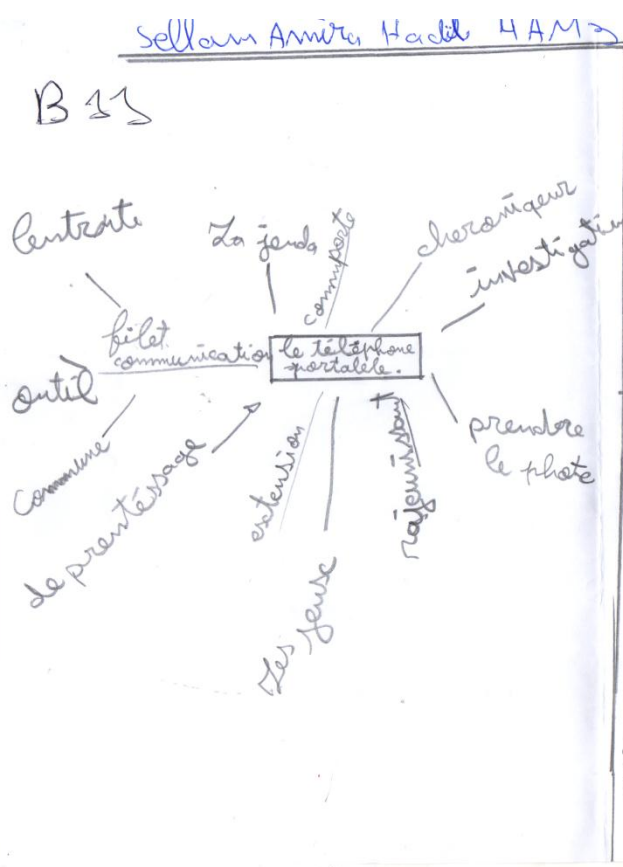 Sellam Amira Hadil 4AM3
B 11
Centraite
La jenda
comuporte
cheroniqeur
investigation
filet
communication
le téléphone
portalele.
outil
commune
de prentéssage
extension
Les jeuse
rajeunissant
prendre
le phote